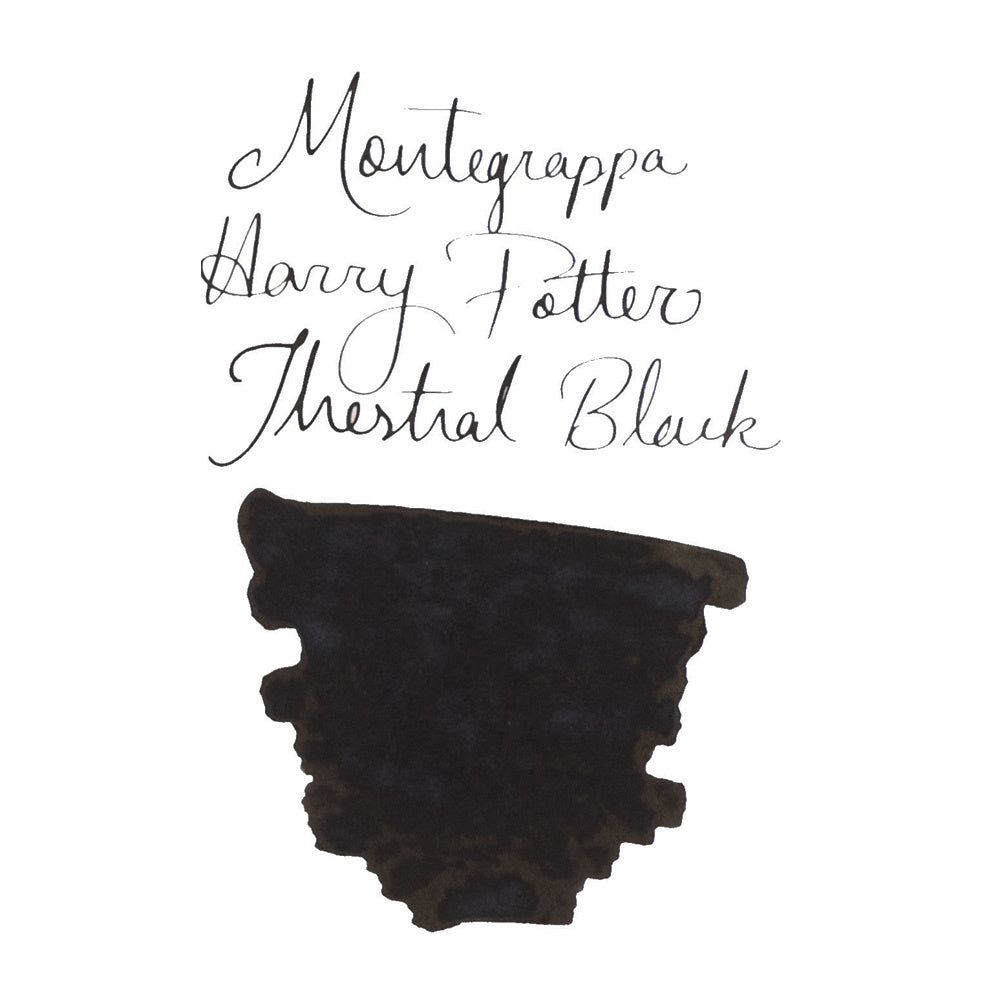 Montegrappa
Harry Potter
Thestral Black